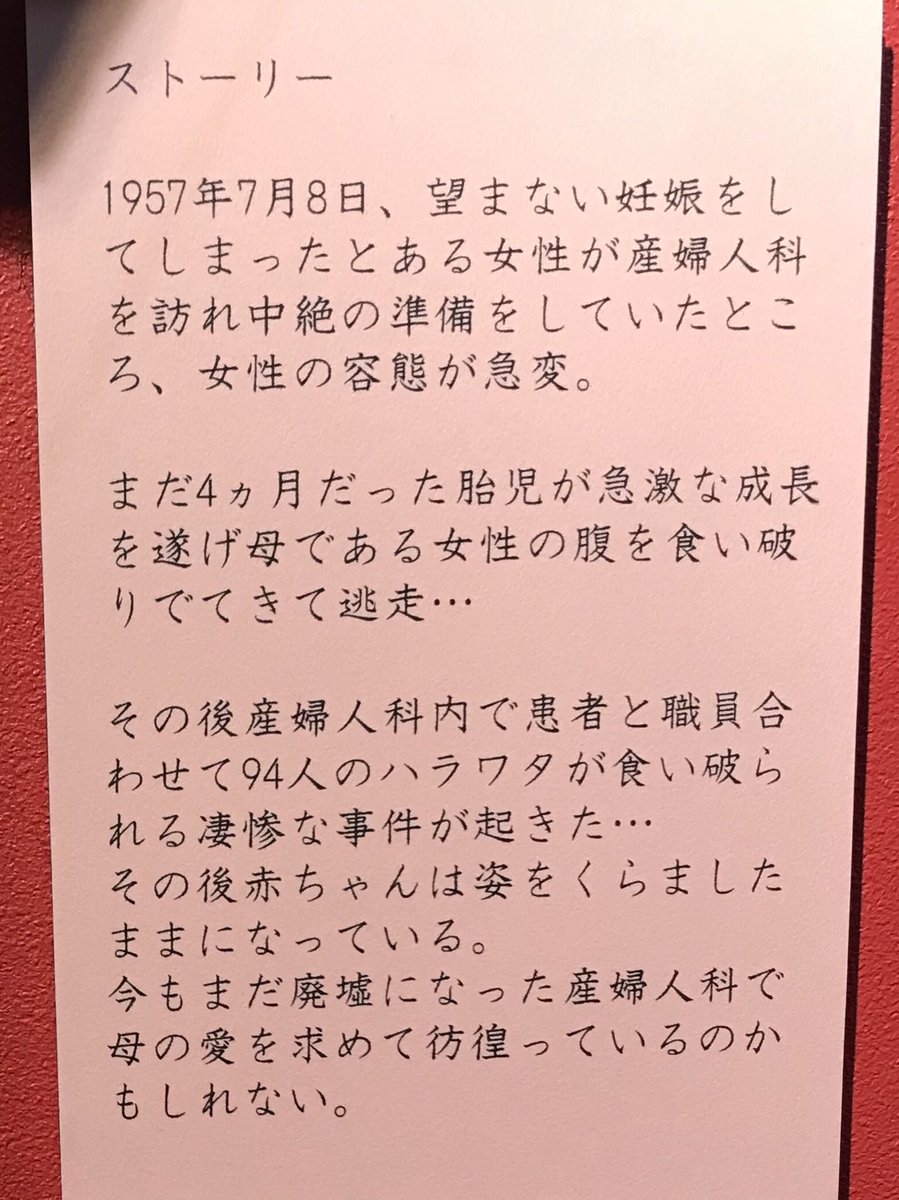 ストーリー
1957年7月8日、望まない妊娠をし
てしまったとある女性が産婦人科
を訪れ中絶の準備をしていたとこ
ろ、女性の容態が急変。
まだ4ヵ月だった胎児が急激な成長
を遂げ母である女性の腹を食い破
りでてきて逃走…
その後産婦人科内で患者と職員合
わせて94人のハラワタが食い破ら
れる凄惨な事件が起きた…
その後赤ちゃんは姿をくらました
ままになっている。
今もまだ廃墟になった産婦人科で
母の愛を求めて彷徨っているのか
もしれない。